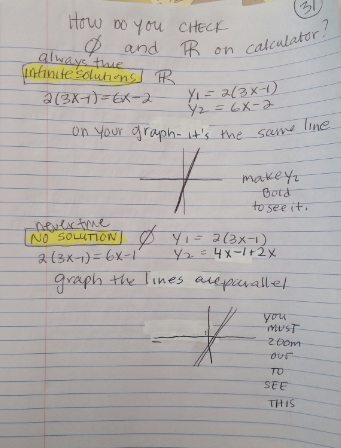 31
How do you check
∅ and ℝ on calculator?
always true
infinite solutions ℝ
2(3x-1)=6x-2
y1 = 2(3x-1)
y2 = 6x-2
on your graph - it's the same line
make y2
Bold
to see it.
never true
NO SOLUTION ∅
2(3x-1)=6x-1
y1 = 2(3x-1)
y2 = 4x-1+2x
graph the lines are parallel
you
must
zoom
out
to
see
this